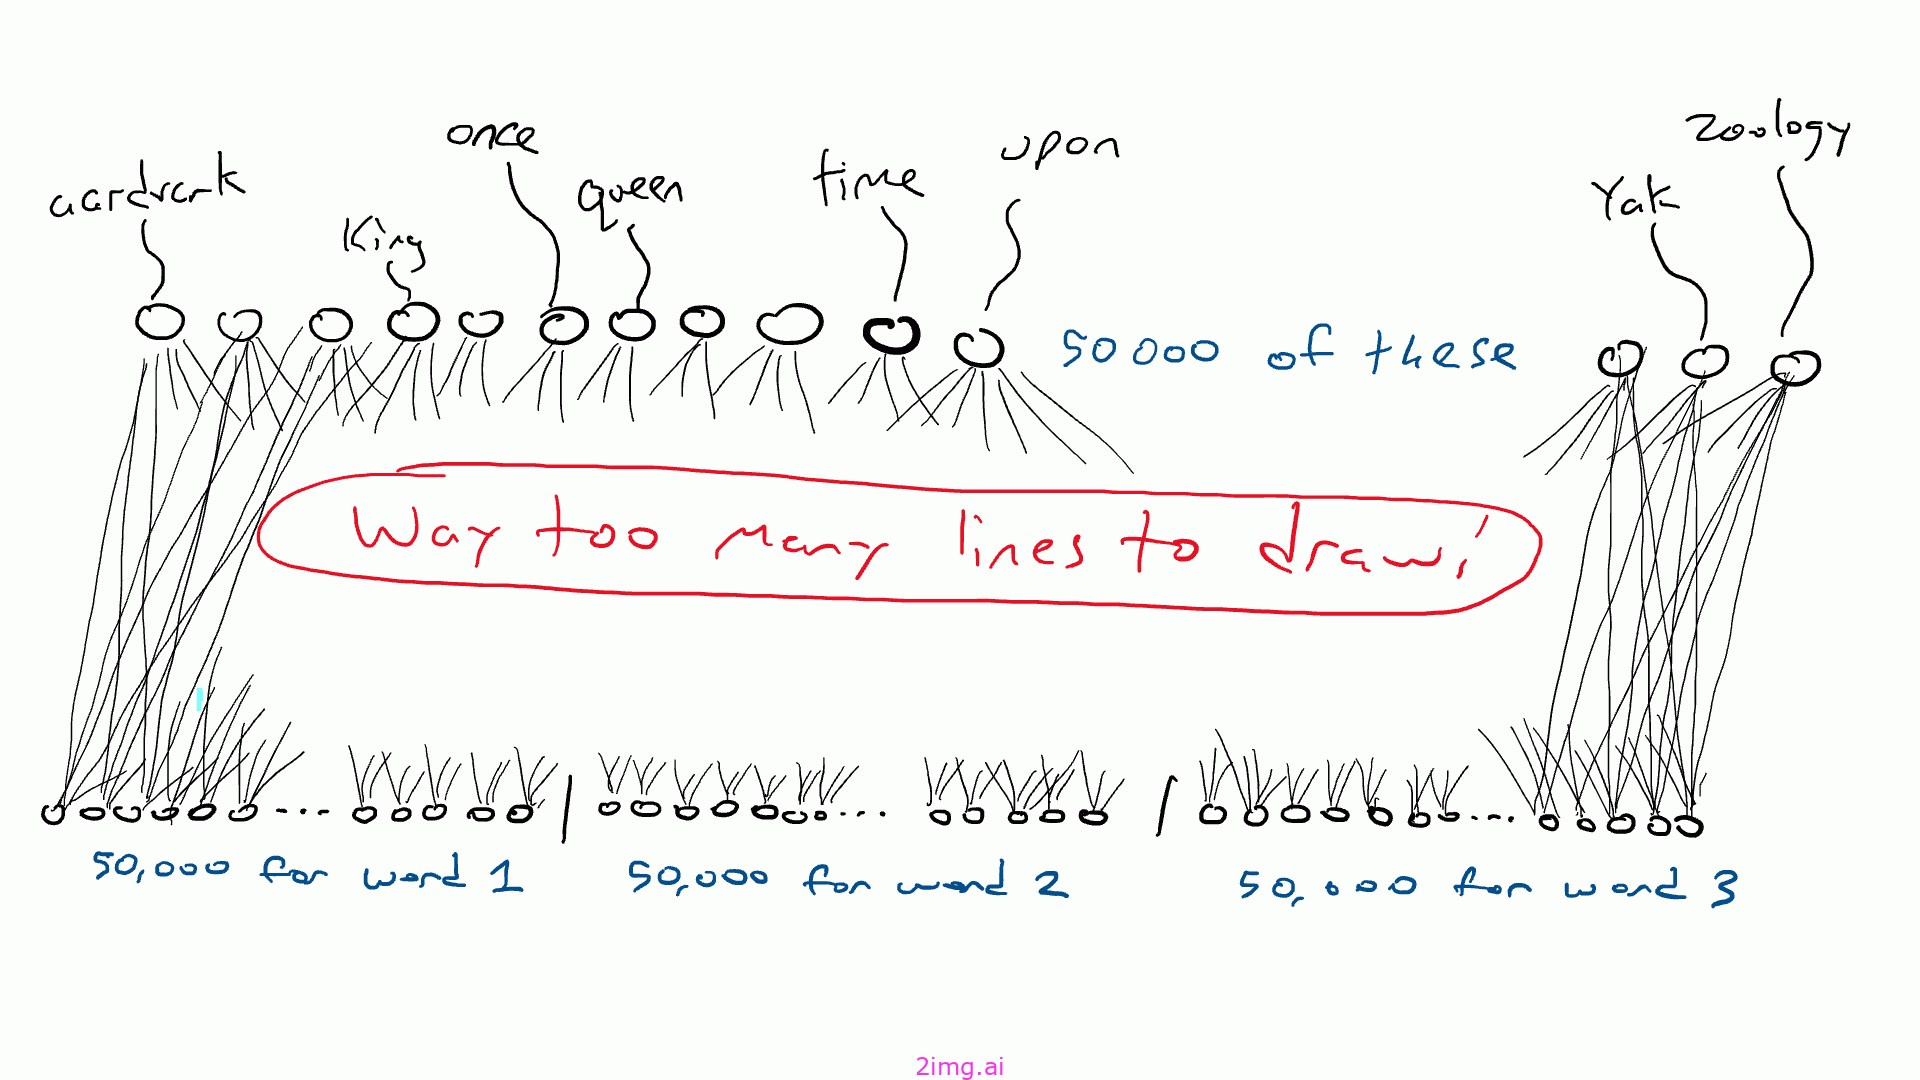 once
zoology
upon
aardvark
queen
time
Yak
King
50000 of these
Way too many lines to draw!
50,000 for word 1
50,000 for word 2
50,000 for word 3
2img.ai